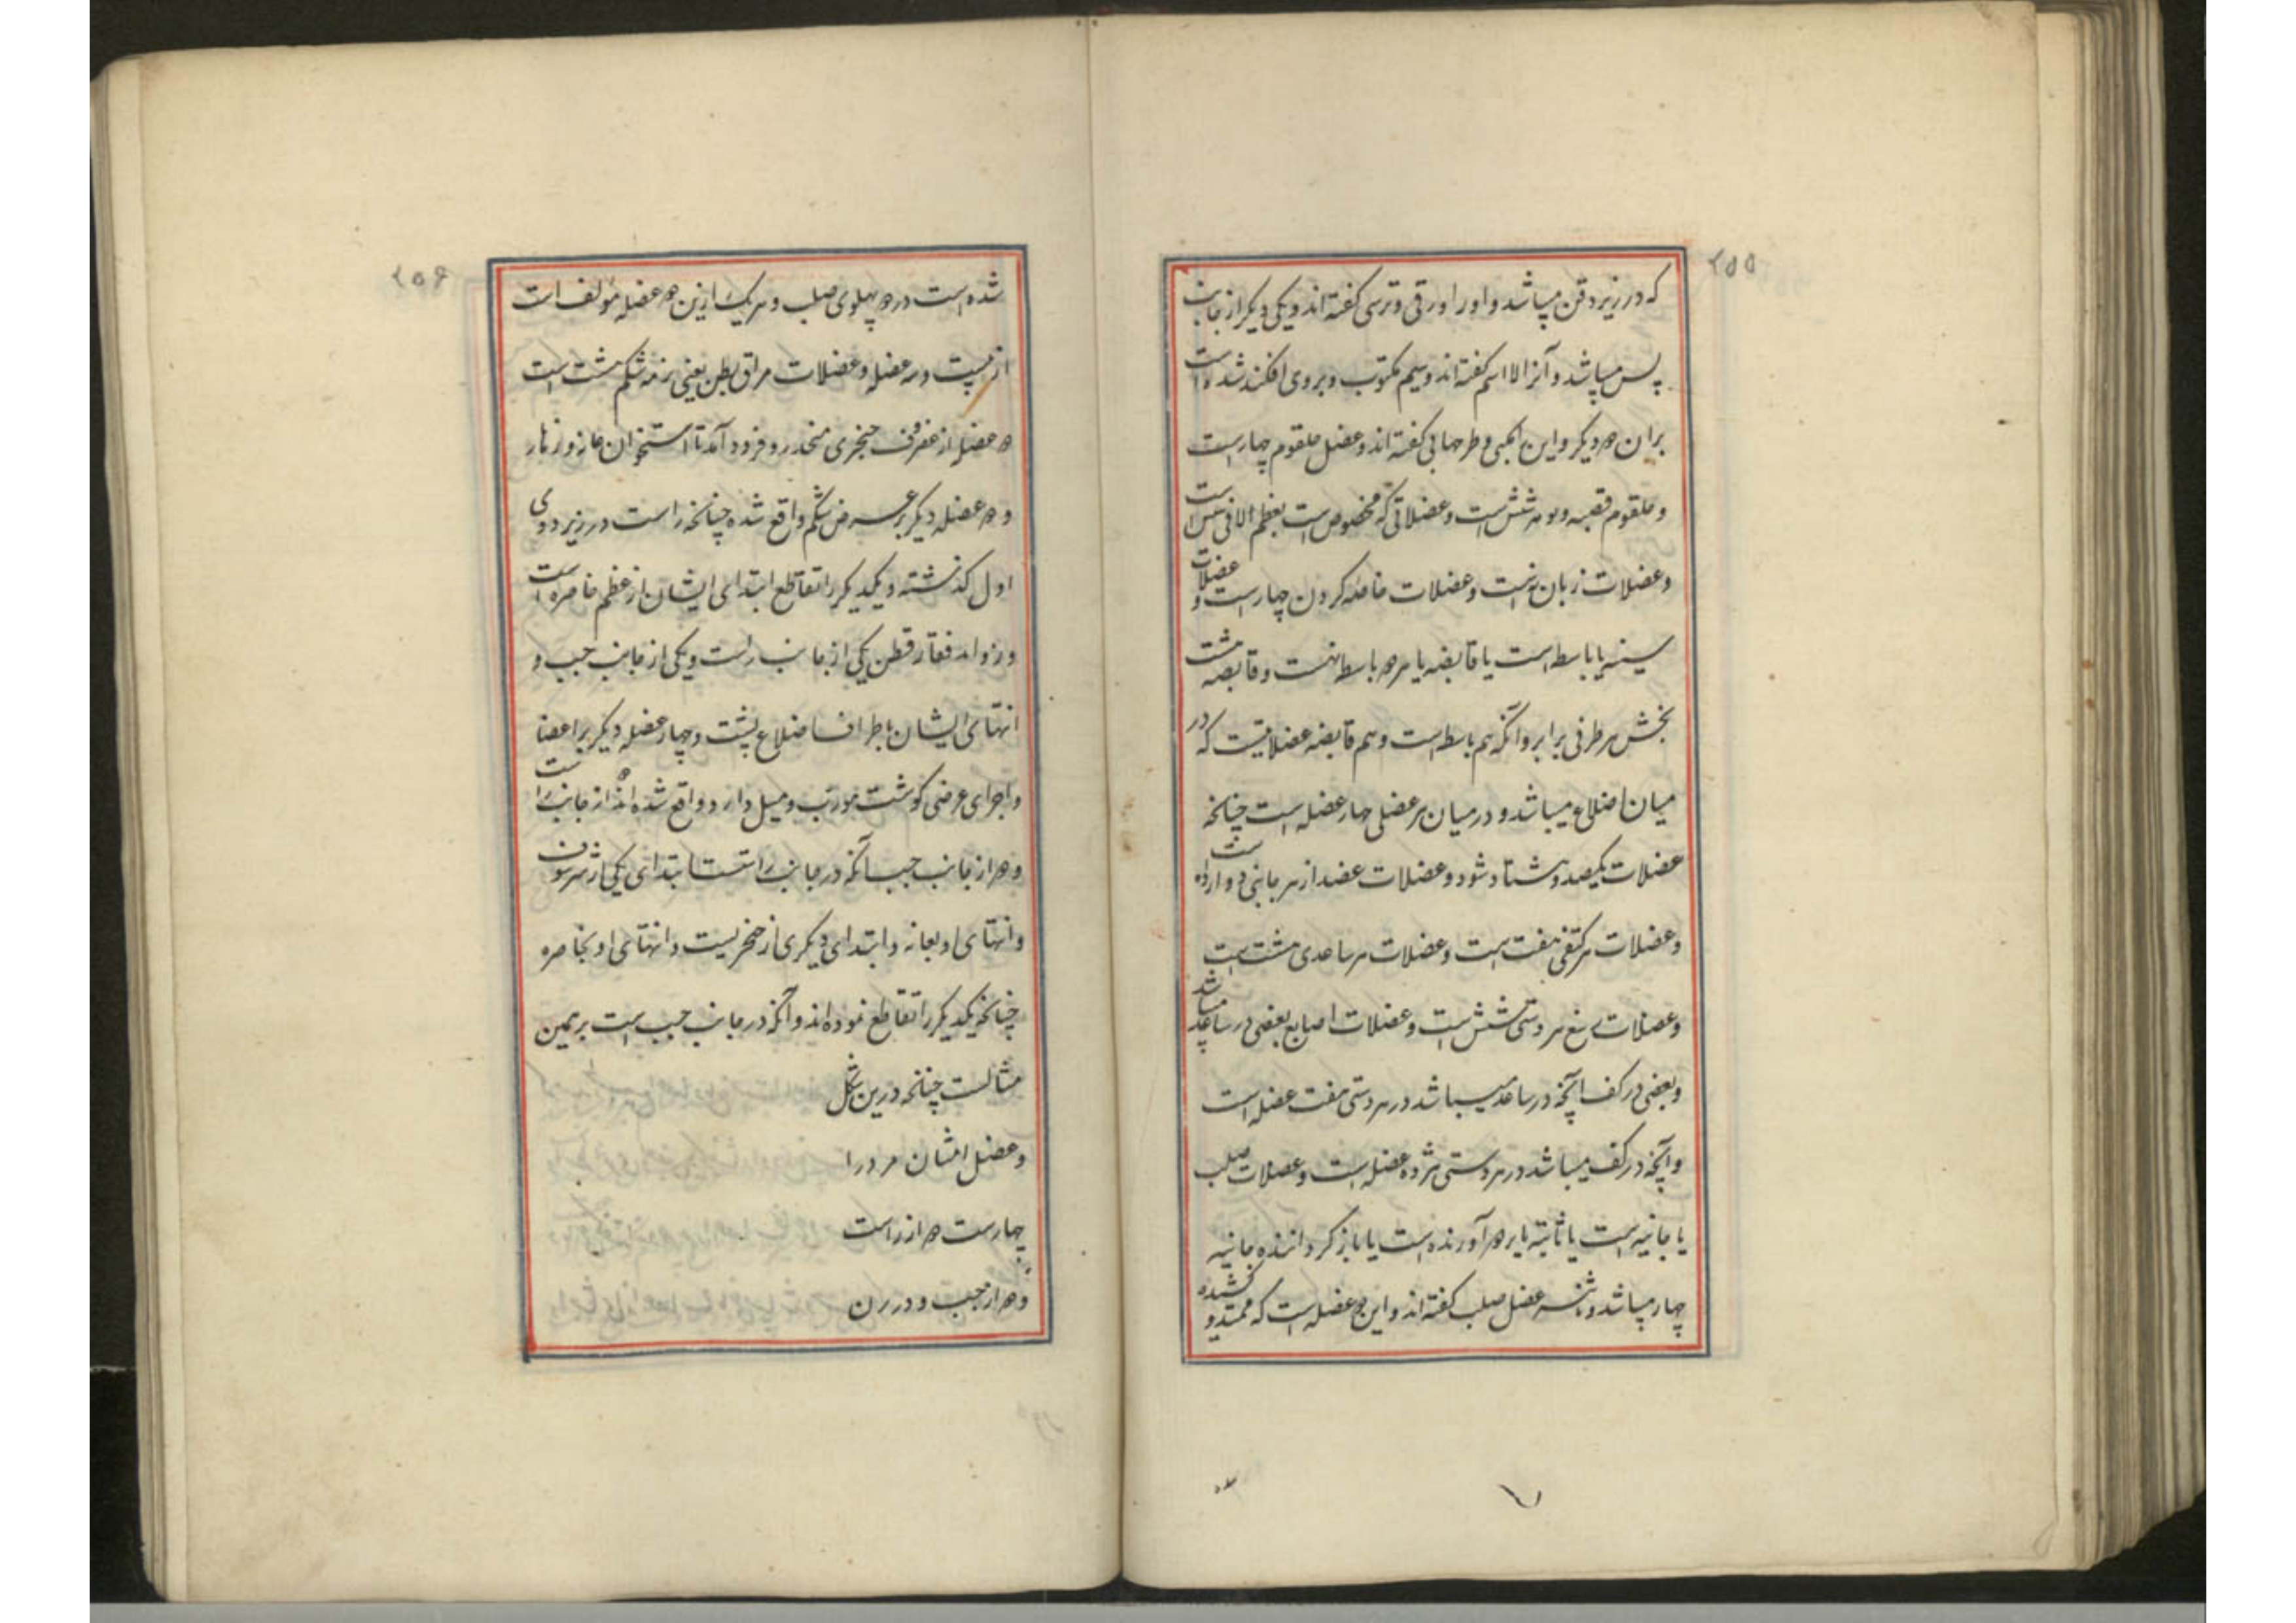 ۲۵۵
که در زیر ذقن میباشد و او را ورقی و ترسی گفته‌اند و یکی دیگر از جانب
پس میباشد و آنرا لا اسم گفته‌اند و سیم مکتوب و بروی افکنده شده است
بران دو دیگر و این را مکبی و طرجهالی گفته‌اند و عضل حلقوم چهارست
و حلقوم قصبه ریه شش است و عضلاتی که مخصوص است بعظم اللامی شش است
و عضلات زبان نه است و عضلات کردن چهارست و عضلات
سینه یا باسطه است یا قابضه یا هر دو باسطه نه است و قابضه هشت
بخش هر طرفی برابر و آنکه هم باسطه است و هم قابضه عضلاتیست که در
میان اضلاع میباشد و در میان هر عضلی چهار عضله است چنانچه
عضلات یکصد و هشتاد شود و عضلات عضد از هر جانبی دوازده است
و عضلات هر کتفی هفت است و عضلات هر ساعدی هشت است
و عضلات رسغ هر دستی شش است و عضلات اصابع بعضی در ساعد میباشد
و بعضی در کف آنچه در ساعد میباشد در هر دستی هفت عضله است
و آنچه در کف میباشد در هر دستی هژده عضله است و عضلات صلب
یا حانیه است یا ثانیه یا بر هم آورنده است یا باز گرداننده حانیه
چهار میباشد و عضل صلب گفته‌اند و این دو عضله است که ممتد و کشیده
۲۵۶
شده است در دو پهلوی صلب و هر یک ازین دو عضله مؤلف است
از بیست و سه عضله و عضلات مراق بطن یعنی نرمه شکم هشت است
دو عضله از غضروف خنجری منحدر و فرود آمد تا استخوان عانه و زهار
و دو عضله دیگر بر عرض شکم واقع شده چنانچه راست در زیر دوی
اول گذشته و یکدیگر را تقاطع ابتدای ایشان از عظم خاصره است
و زواید فقار قطن یکی از جانب راست و یکی از جانب چپ و
انتهای ایشان باطراف اضلاع پشت و چهار عضله دیگر بر اعضا
و اجزای عرضی گوشت مورب و میل دارد واقع شده‌اند دو از جانب راست
و دو از جانب چپ آنکه در جانب راست ابتدای یکی از شرسوف
و انتهای او بعانه و ابتدای دیگری از خنجریست و انتهای او بخاصره
چنانچه یکدیگر را تقاطع نموده‌اند و آنکه در جانب چپ است بر همین
مثالست چنانچه درین شکل
و عضل انثیان مرد را
چهارست دو از راست
و دو از چپ و در زن